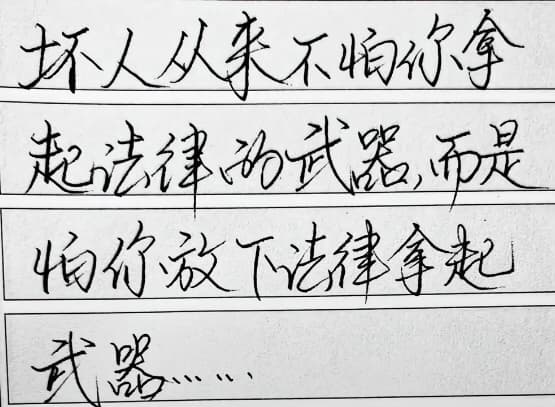 坏人从来不怕你拿
起法律的武器,而是
怕你放下法律拿起
武器……